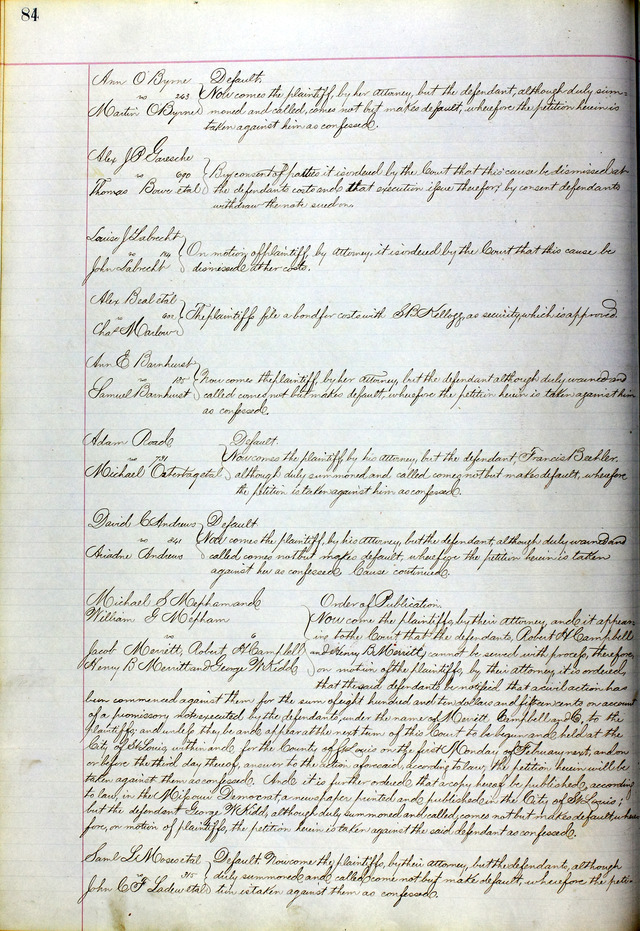 84
Ann O'Byrne Default.
vs 243 Now comes the plaintiff, by her attorney, but the defendant, although duly sum-
Martin O'Byrne moned and called, comes not but makes default, wherefore the petition herein is
taken against him as confessed.
Alex J P Garesche
vs 690 By consent of parties it is ordered by the Court that this cause be dismissed at
Thomas Bowe et al the defendants costs and that execution issue therefor, by consent defendants
withdraw the note sued on.
Louise J Labrecht
vs On motion of plaintiff, by attorney, it is ordered by the Court that this cause be
John Labrecht dismissed at her costs.
Alex Beal et al
The plaintiffs file a bond for costs with S B Kellogg, as security, which is approved
vs
Chas Marlow
Ann E Barnhurst
vs 105 Now comes the plaintiff, by her attorney, but the defendant although duly warned and
Samuel Barnhurst called comes not but makes default, wherefore the petition herein is taken against him
as confessed.
Adam Default.
vs 731 Now comes the plaintiff, by his attorney, but the defendant, Francis Baehler,
Michael Ostertag et al although duly summoned and called comes not but makes default, wherefore
the petition is taken against him as confessed.
David C Andrews Default
vs 241 Now comes the plaintiff, by his attorney, but the defendant, although duly warned and
Ariadne Andrews called, comes not but makes default, wherefore the petition herein is taken
against her as confessed. Cause continued.
Michael S Mepham and Order of Publication.
William G Mepham Now come the plaintiffs, by their attorney, and it appear-
vs ing to the Court that the defendants, Robert H Campbell
Jacob Merritt, Robert H Campbell and Henry B Merritt, cannot be served with process, therefore,
Henry B Merritt and George W Kidd on motion of the plaintiffs, by their attorney, it is ordered,
that the said defendants be notified that a civil action has
been commenced against them for the sum of eight hundred and ten dollars and fifteen cents on account
of a promissory note executed by the defendants, under the name of Merritt, Campbell and Co, to the
plaintiffs; and unless they be and appear at the next term of this Court to be begun and held at the
City of St Louis, within and for the County of St Louis on the first Monday of February next, and on
or before the third day thereof, answer to the action aforesaid, according to law, the petition herein will be
taken against them as confessed. And it is further ordered that a copy hereof be published, according
to law, in the Missouri Democrat, a newspaper printed and published in the City of St Louis;
but the defendant George W Kidd, although duly summoned and called, comes not but makes default, where-
fore, on motion of plaintiffs, the petition herein is taken against the said defendant as confessed.
Saml L Moses et al Default. Now come the plaintiffs, by their attorney, but the defendants, although
vs 315 duly summoned and called come not but make default, wherefore the peti-
John C F Ladew et al tion is taken against them as confessed.